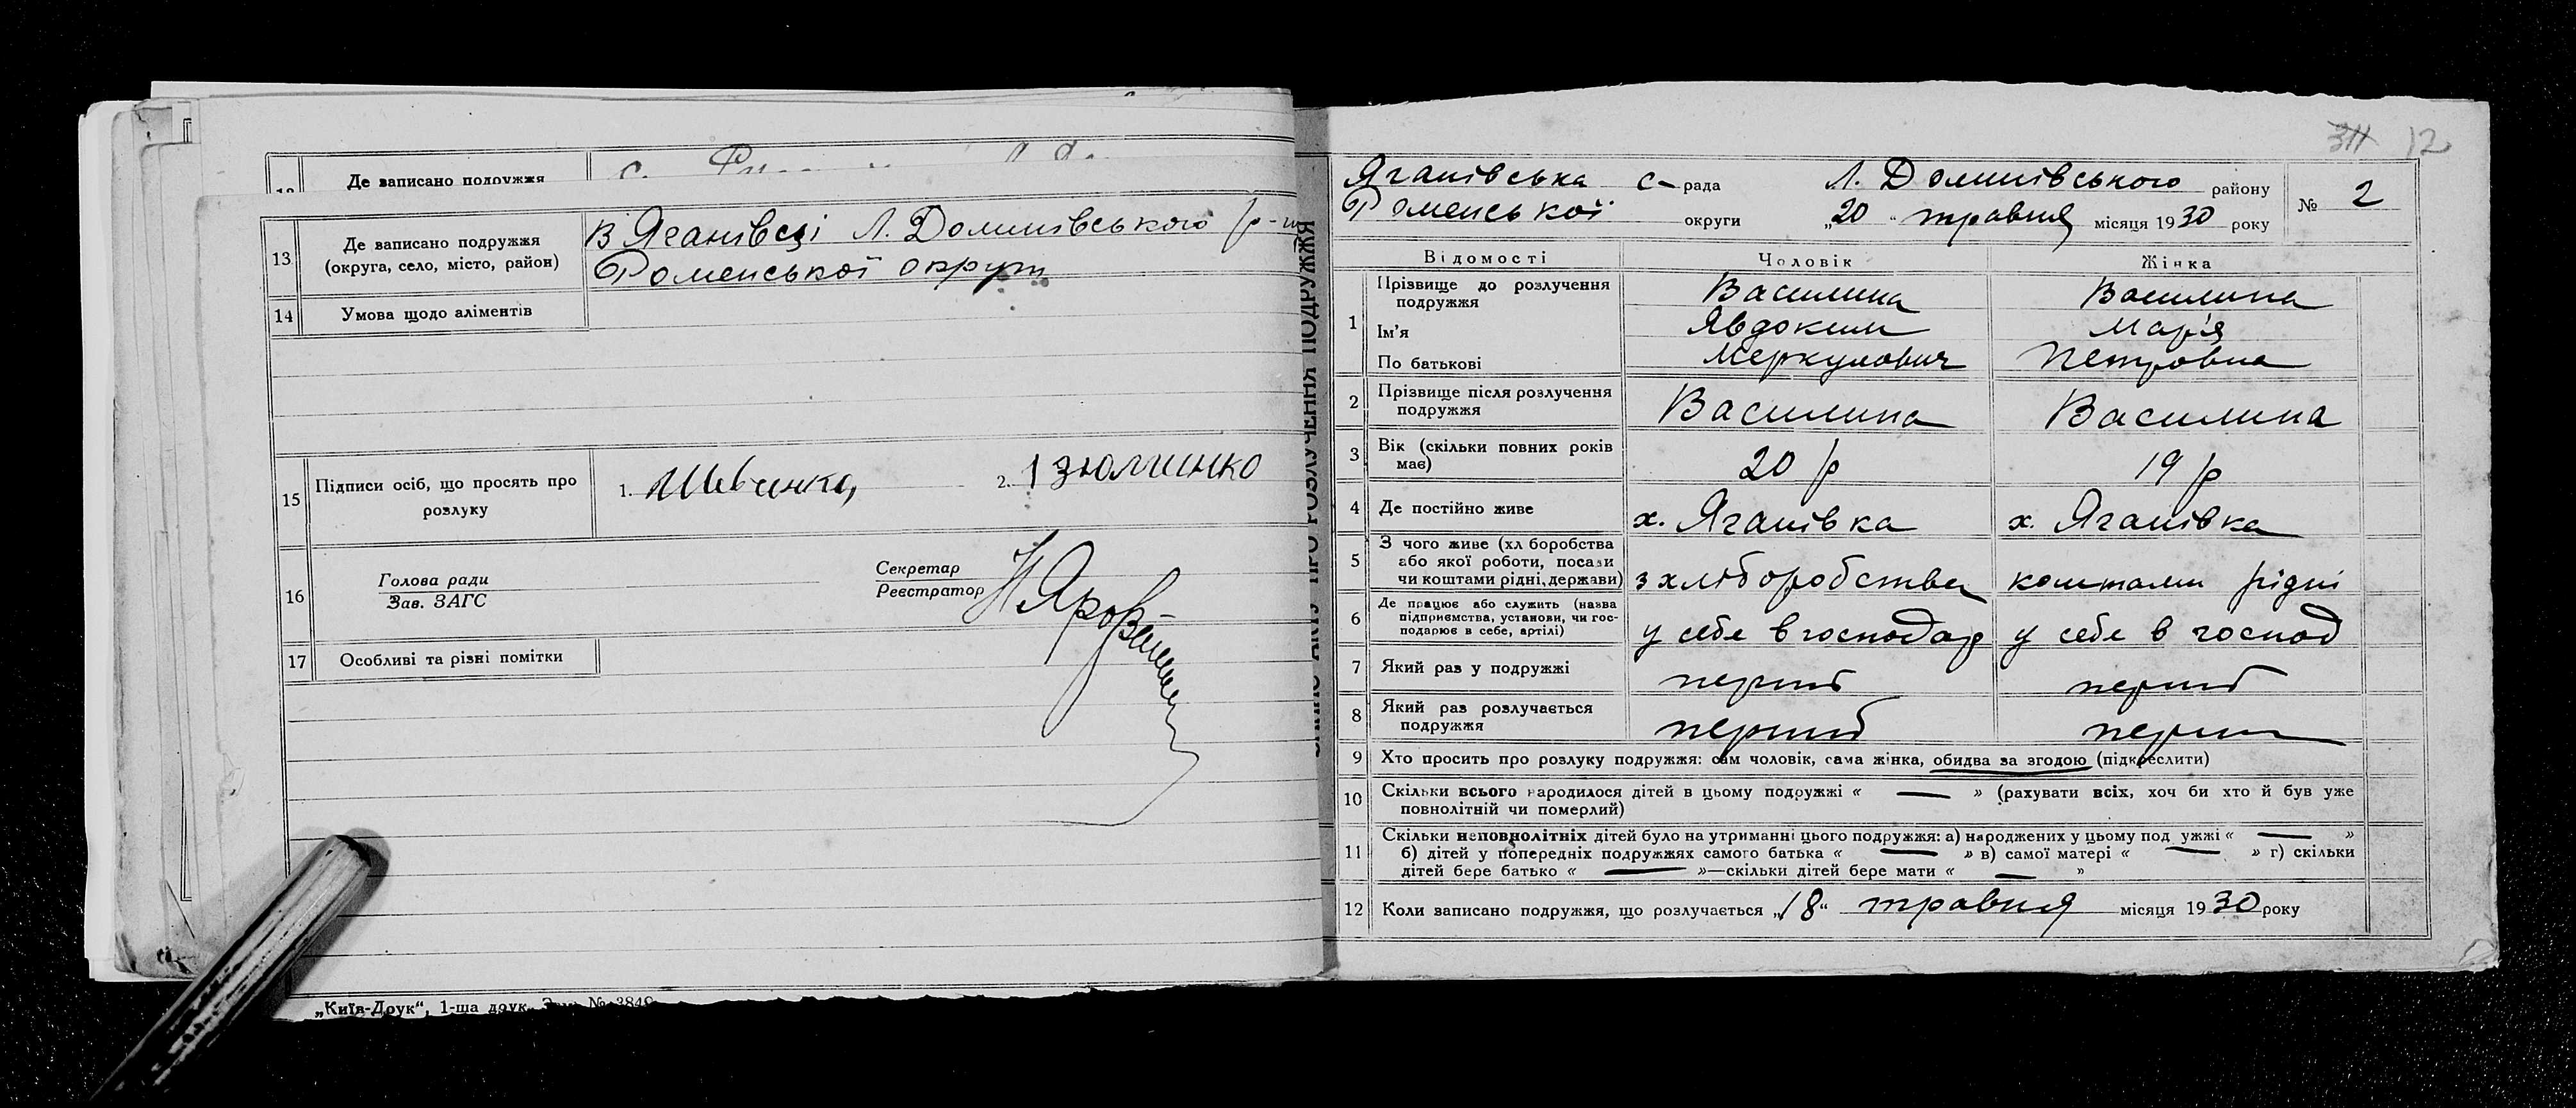 Де записано подружжя
13 Де записано подружжя (округа, село, місто, район) В Яганівсці Л. Долинівського р-ну
Роменської округи
14 Умова щодо аліментів
15 Підписи осіб, що просять про розлуку 1. Шевченко, 2. Ізюминко
16 Голова ради
Зав. ЗАГС
Секретар
Реєстратор
17 Особливі та різні помітки
„Київ-Друк“, 1-ша друк. № 3849
ПРО РОЗЛУЧЕННЯ ПОДРУЖЖЯ
12
Яганівська с- рада Л. Долинівського району № 2
Роменської округи „20“ травня місяця 1930 року
Відомості Чоловік Жінка
1 Прізвище до розлучення подружжя Василина Василина
Ім'я Явдоким Мар'я
По батькові Меркулович Петровна
2 Прізвище після розлучення подружжя Василина Василина
3 Вік (скільки повних років має) 20 р 19 р
4 Де постійно живе х. Яганівка х. Яганівка
5 З чого живе (хліборобства або якої роботи, посади чи коштами рідні, держави) з хліборобства коштами рідні
6 Де працює або служить (назва підприємства, установи, чи господарює в себе, артілі) у себе в господар у себе в господ
7 Який раз у подружжі перший перший
8 Який раз розлучається подружжя перший перши
9 Хто просить про розлуку подружжя: сам чоловік, сама жінка, обидва за згодою (підкреслити)
10 Скільки всього народилося дітей в цьому подружжі « — » (рахувати всіх, хоч би хто й був уже
повнолітній чи померлий)
11 Скільки неповнолітніх дітей було на утриманні цього подружжя: а) народжених у цьому подружжі « — »
б) дітей у попередніх подружжях самого батька « — » в) самої матері « — » г) скільки
дітей бере батько « — »—скільки дітей бере мати « — »
12 Коли записано подружжя, що розлучається „18“ травня місяця 1930 року